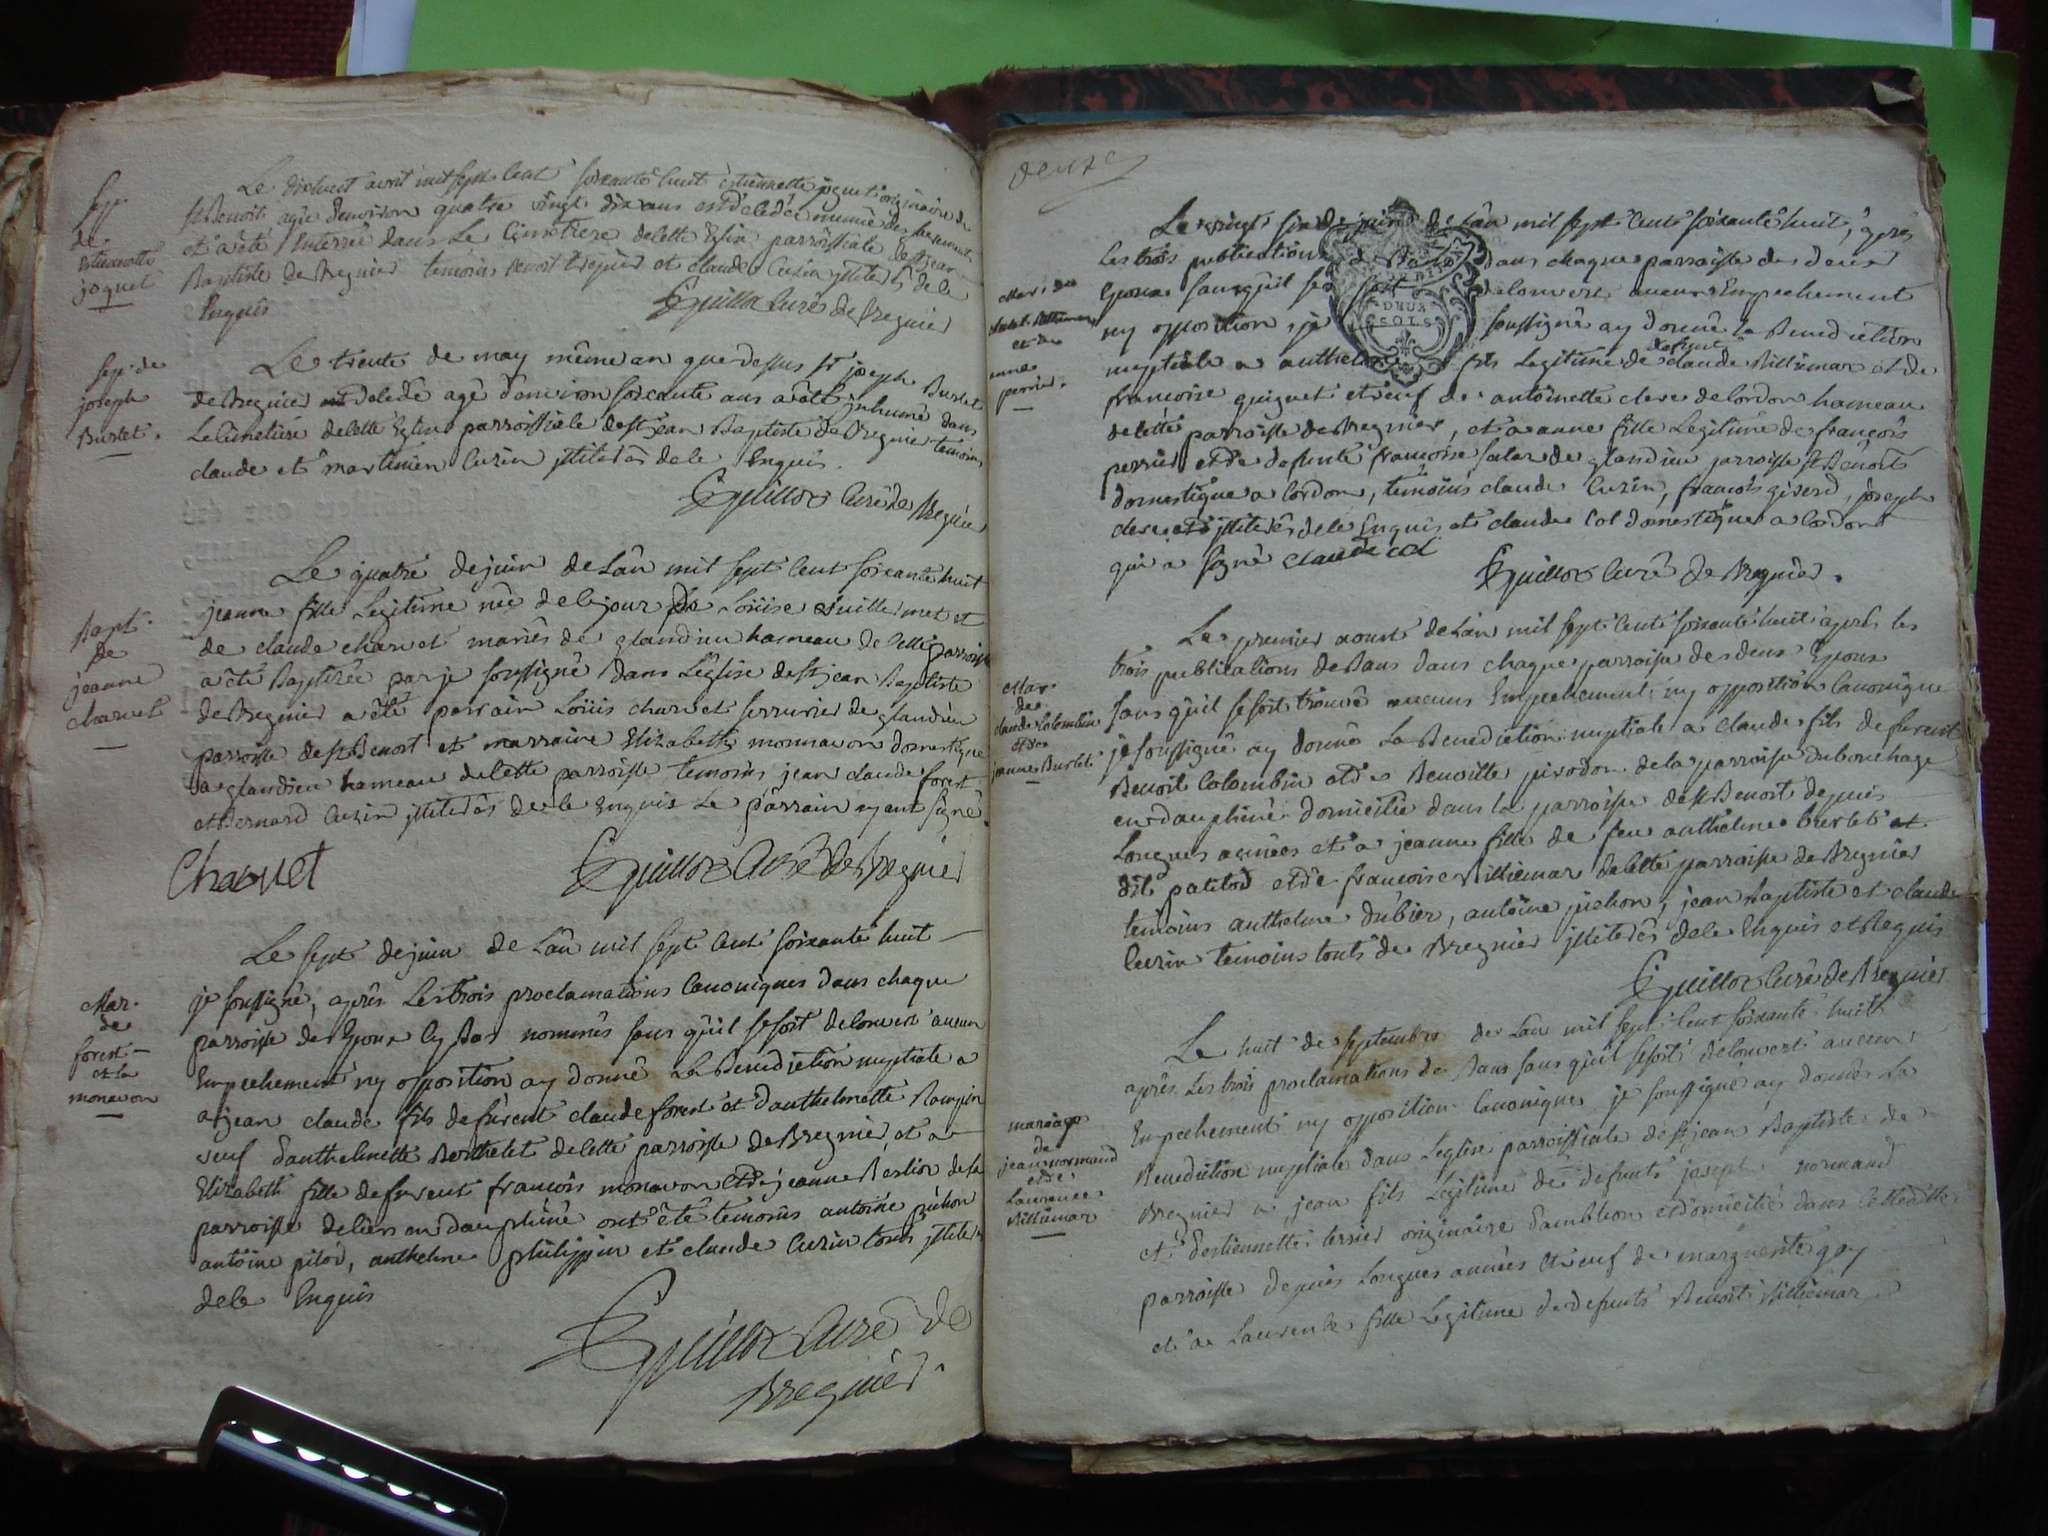 Sep.
de
estiennette
joquet
Le dixhuit avril mil sept cent soixante huit estiennette joquet originaire de
st Benoit agée denviron quatre vingt dix ans est decedée munie des sacrements
et a èté Enterrée dans Le Cimetiere decette Eglise parroissiale de st jean
Baptiste de Bregnier temoins Benoit et claude Cuzin jlliterés de ce
Enquis
Guillot Curé de Bregnier
Sep. de
joseph
Burlet.
Le trente de may même an que dessus Sr joseph Burlet
de Bregnier est decedé agé denviron soixante ans a èté inhumé dans
Le Cimetiere decette Eglise parroissiale de st jean Baptiste de Bregnier temoins
claude et martinien Cuzin jlliterés de ce Enquis.
Guillot Curé de Bregnier
Bapt.
de
jeanne
charvet
Le quatre de juin de L'an mil sept cent soixante huit
jeanne fille Legitime née de ce jour de Loüise Guillermet et
de claude charvet mariés de glandieu hameau de cette parroisse
a èté Baptizée par je soussigné dans L'église de st jean Baptiste
de Bregnier a èté parrain Loüis charvet serrurier de glandieu
parroisse de st Benoit et marraine Elizabeth monnavon domestique
a glandieu hameau decette parroisse temoins jean claude forest
et Bernard Cuzin jlliterés de ce Enquis Le parrain ayant signé.
Charvet
Guillot Curé de Bregnier
Mar.
de
forest
et la
monavon
Le sept de juin de L'an mil sept cent soixante huit
je soussigné, après Les trois proclamations Canoniques dans chaque
parroisse des Epoux cy Bas nommés sans qu'il se soit decouvert aucun
Empechement ny opposition ay donné La Benediction nuptiale a
a jean claude fils de furent claude forest et d'anthelmette Rampin
veuf d'anthelmette Berthelet decette parroisse de Bregnier, et a
Elizabeth fille de furent françois monavon et de jeanne Berlioz de la
parroisse de en dauphiné ont été temoins antoine pichon
antoine pitod, anthelme philippin et claude Cuzin tous jlliterés
de ce Enquis
Guillot Curé de
Bregnier.
deuze
Mar. de
et de
anne
perrier.
Le vingt six de juin de L'an mil sept cent soixante huit, après
Les trois publications de Bans dans chaque parroisse des deux
Epoux sans qu'il se soit decouvert aucun Empechement
ny opposition, je soussigné ay donné La Benediction
nuptiale a anthelme fils Legitime de defunt claude Billiemaz et de
francoise guiguet et veuf de antoinette clerc de Cordon hameau
decette parroisse de Bregnier, et a anne fille Legitime de françois
perrier et de defunte francoise de glandieu parroisse st Benoit
domestique a Cordon, temoins claude Cuzin, françois , joseph
clerc jlliterés de ce Enquis et claude Col domestique a Cordon
qui a signé claude col
Guillot Curé de Bregnier.
DEUX
SOLS
Mar.
de
claude Colombin
et de
jeanne Burlet
Le premier aoust de L'an mil sept cent soixante huit après les
trois publications de Bans dans chaque parroisse des deux Epoux
sans qu'il se soit trouvé aucuns Empechement ny opposition Canonique
je soussigné ay donné La Benediction nuptiale a claude fils de furent
Benoit Colombin et de Benoitte pivodon de la parroisse du bouchage
en dauphiné domicilié dans la parroisse de st Benoit depuis
Longues années et a jeanne fille de feu anthelme burlet et
dit patitod et de francoise Billiemaz decette parroisse de Bregnier
temoins anthelme dubier, antoine pichon, jean Baptiste et claude
Cuzin temoins touts de Bregnier jlliterés de ce Enquis et Requis
Guillot Curé de Bregnier
mariage
de
jean normand
et de
Laurence
Billiemaz
Le huit de septembre de L'an mil sept cent soixante huit
après Les trois proclamations de Bans sans qu'il se soit decouvert aucun
Empechement ny opposition Canonique je soussigné ay donné La
Benediction nuptiale dans L'eglise parroissiale de st jean Baptiste de
Bregnier a jean fils Legitime de defunts joseph normand
et d'estiennette originaire d'ambleon et domicilié dans cette ditte
parroisse depuis Longues années et veuf de marguerite goy
et a Laurence fille Legitime de defunts Benoit Billiemaz